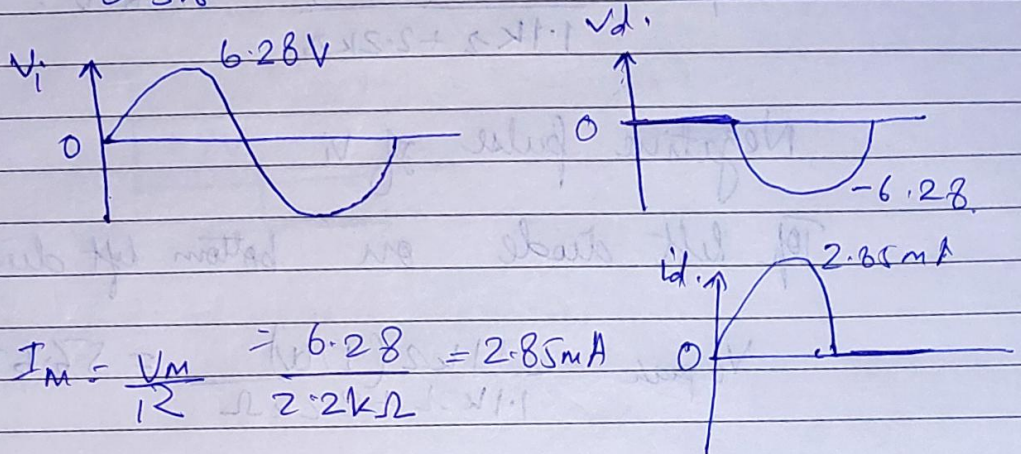 Vi
6.28V
0
Vd.
0
-6.28
id.
2.85mA
0
IM = VM/R = 6.28/2.2kΩ = 2.85mA